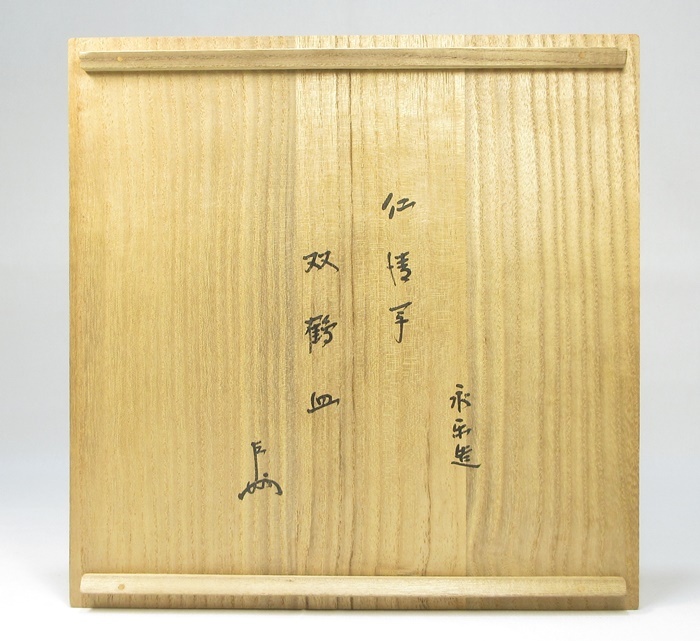 永楽造
仁清写
双鶴皿